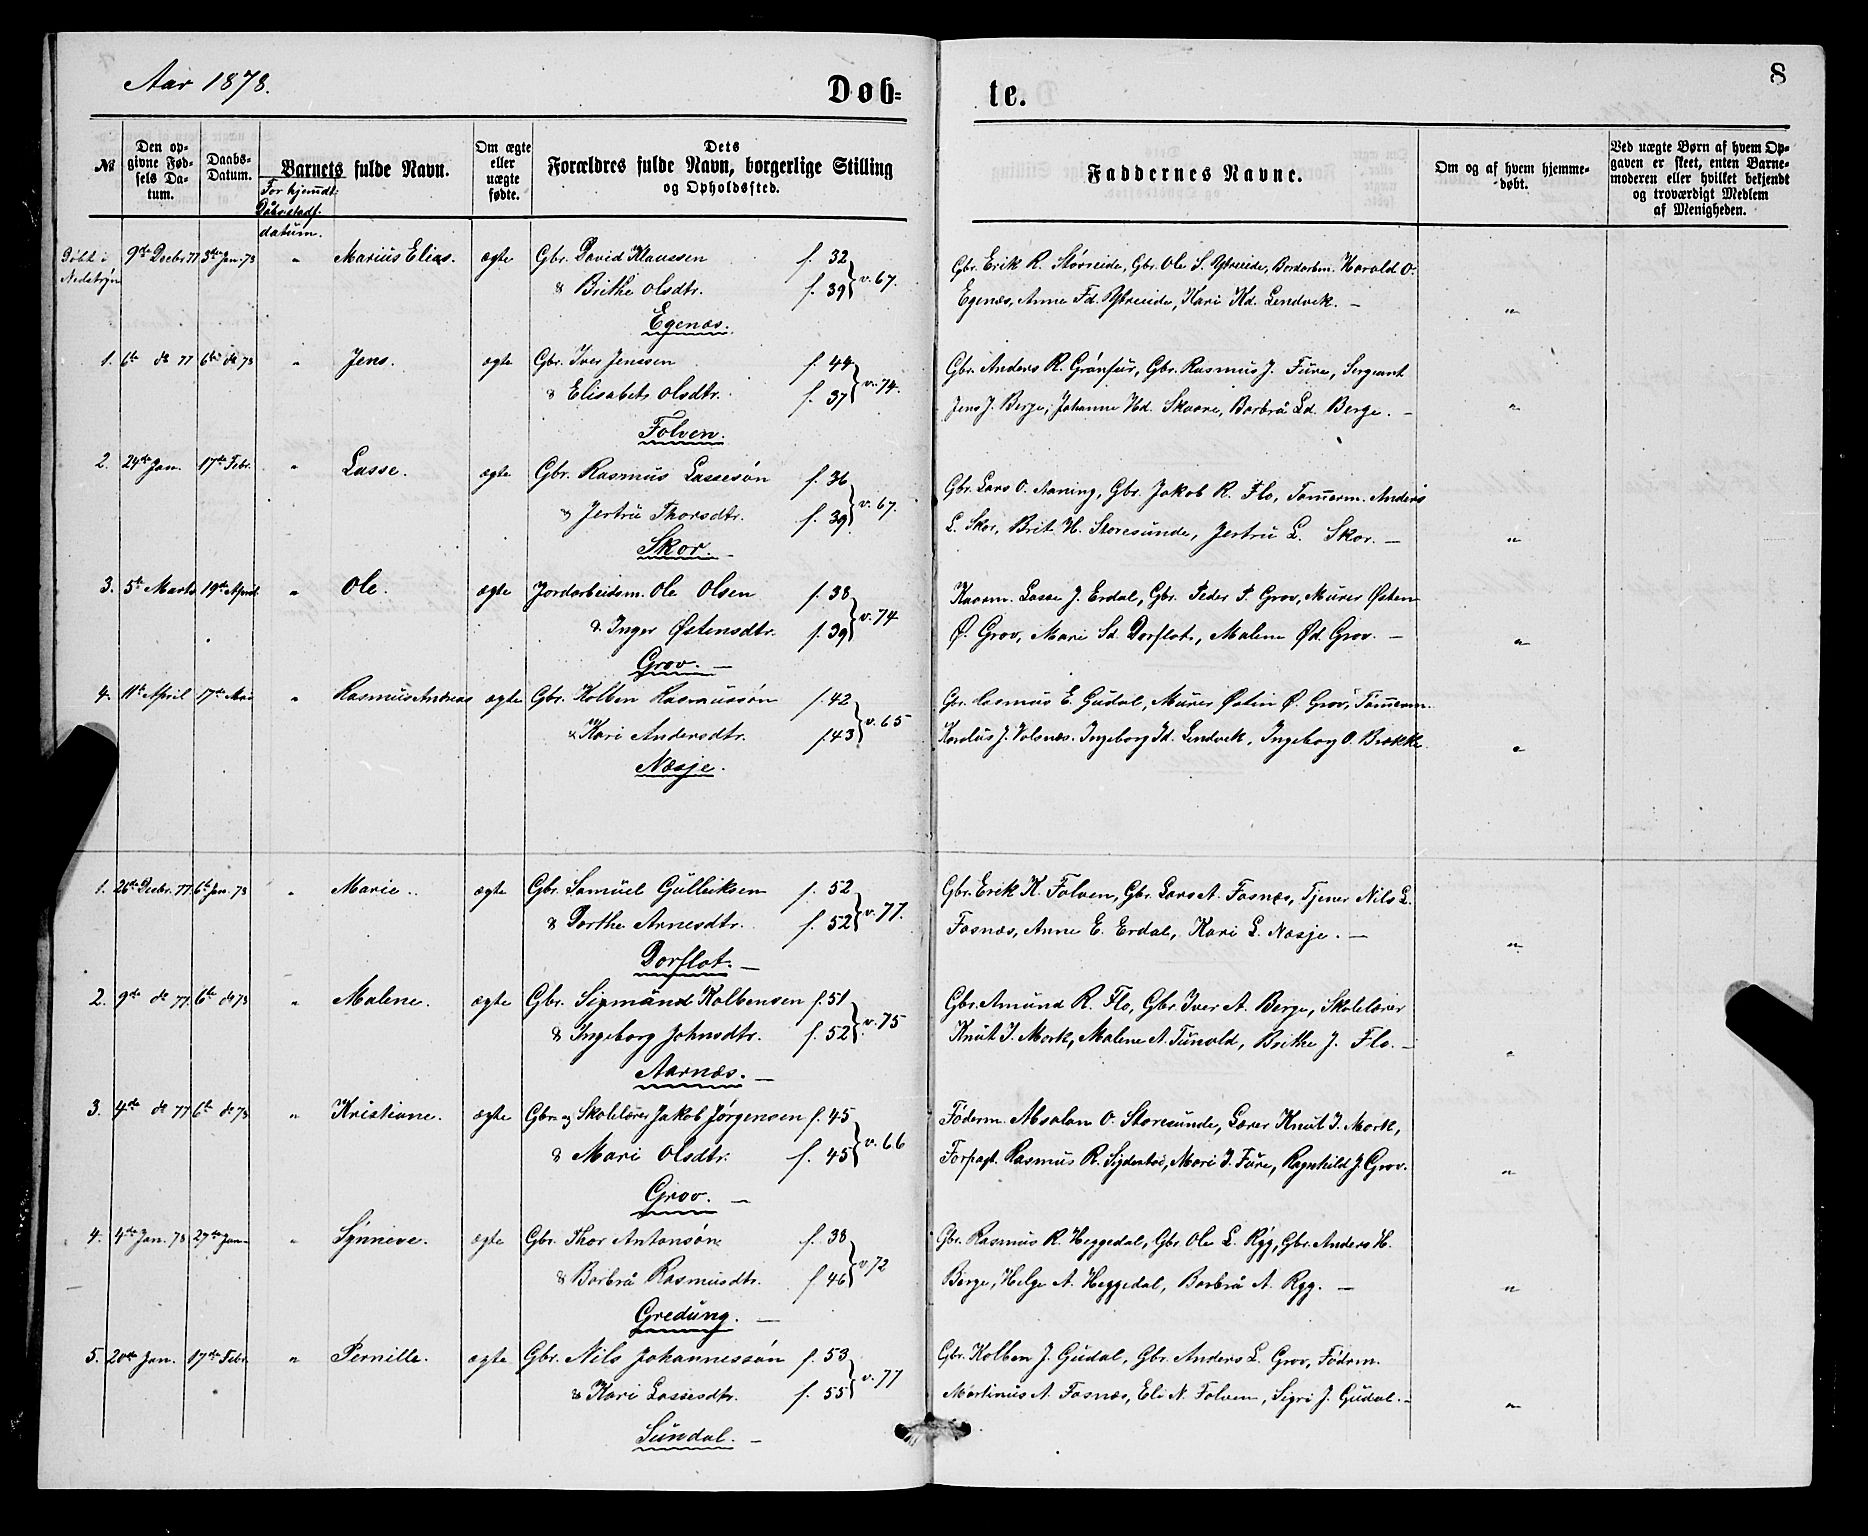 Aar 1878.
Døb=
te.
8
№
Den op-
givne Fød-
sels Da-
tum.
Daabs-
Datum.
Barnets fulde Navn.
For hjemdt:
Dåbsstadf.
datum.
Om ægte
eller
uægte
fødte.
Dets
Forældres fulde Navn, borgerlige Stilling
og Opholdssted.
Faddernes Navne.
Om og af hvem hjemme-
døbt.
Ved uægte Børn af hvem Op-
gaven er skeet, enten Barne-
moderen eller hvilket bekjendt
og troværdigt Medlem
af Menigheden.
Døbt i
Nedstryn
9de Decbr 77 3de Jan. 78 " Marius Elias. ægte Gbr. David Klaussen f. 32
& Brithe Olsdtr. f. 39 } v. 67.
Egenæs.
Gbr. Erik R. Størreide, Gbr. Ole S. Ytreeide, Bordarbm. Harald O.
Egenæs, Anne Fd. Ytreeide, Kari Kd. Lendvik. — "
1. 6te do 77 6te do 78 " Jens. ægte Gbr. Iver Jenssen f. 44
& Elisabet Olsdtr. f. 37 } v. 74.
Folven.
Gbr. Anders R. Grånfur, Gbr. Rasmus J. Fure, Sergeant
Jens J. Berge, Johanne Hd. Skaare, Barbrå Ld. Berge. — "
2. 24de Jan. 17de Febr. " Lasse. ægte Gbr. Rasmus Lassesøn f. 36
og Jertru Thorsdtr. f. 39 } v. 67.
Skor. —
Gbr. Lars O. Aaning, Gbr. Jakob R. Flo, Tømerm. Anders
L. Skor, Brit H. Storesunde, Jertru L. Skor. — "
3. 5te Marts 19de April " Ole. ægte Jordarbeidsm. Ole Olsen f. 38
& Inger Østensdtr. f. 39 } v. 74
Grov. —
Kaarm. Lasse J. Erdal, Gbr. Peder P. Grov, Murer Østen
Ø. Grov, Mari Sd. Dorflot, Malene Ød. Grov. — "
4. 11te April 17de Mai " Rasmus Andreas ægte Gbr. Kolben Rasmussøn f. 42
& Kari Andersdtr. f. 43 } v. 65
Næsje.
Gbr. Rasmus E. Gudal, Murer Østin Ø. Grov, Tømerm.
J. Volsnæs. Ingeborg Id. Lendvik, Ingeborg O. Brække "
1. 26de Decbr. 77 6te Jan. 78 " Marie. ægte Gbr. Samuel Gulleiksen f. 52
& Dorthe Arnesdtr. f. 52 } v. 77.
Dorflot. —
Gbr. Erik K. Folven, Gbr. Lars A. Fosnæs, Tjener Nils L.
Fosnæs, Anne E. Erdal, Kari L. Næsje. — "
2. 9de do 77 6te do 78 " Malene. ægte Gbr. Sigmund Kolbensen f. 51
& Ingeborg Johnsdtr. f. 52 } v. 75
Aarnæs. —
Gbr. Amund R. Flo, Gbr. Iver A. Berge, Skolelærer
Knut I. Mork, Malene A. Tunold, Brithe J. Flo. — "
3. 4de do 77 6te do 78 " Kristiane. ægte Gbr. og Skolelærer Jakob Jørgensen f. 45
& Mari Olsdtr. f. 45 } v. 66
Grov. —
Føderm. Absalon O. Storesunde, Lærer Knut I. Mork,
Forpagt. Rasmus R. Mari I. Fure, Ragnhild J. Grov. "
4. 4de Jan. 78 27de Jan. " Synneve. ægte Gbr. Thor Antonsøn f. 38
& Barbrå Rasmusdtr. f. 46 } v. 72
Gredung. —
Gbr. Rasmus R. Heggedal, Gbr. Ole L. Ryg, Gbr. Anders H.
Berge, Helge A. Heggedal, Barbrå A. Ryg. — "
5. 20de Jan. 17de Febr. " Pernille. ægte Gbr. Nils Johannessøn f. 53
& Kari Lassesdtr. f. 55 } v. 77
Sundal. —
Gbr. Kolben J. Gudal, Gbr. Anders L. Grov, Føderm.
Martinus A. Fosnæs, Eli N. Folven, Sigri J. Gudal. — "